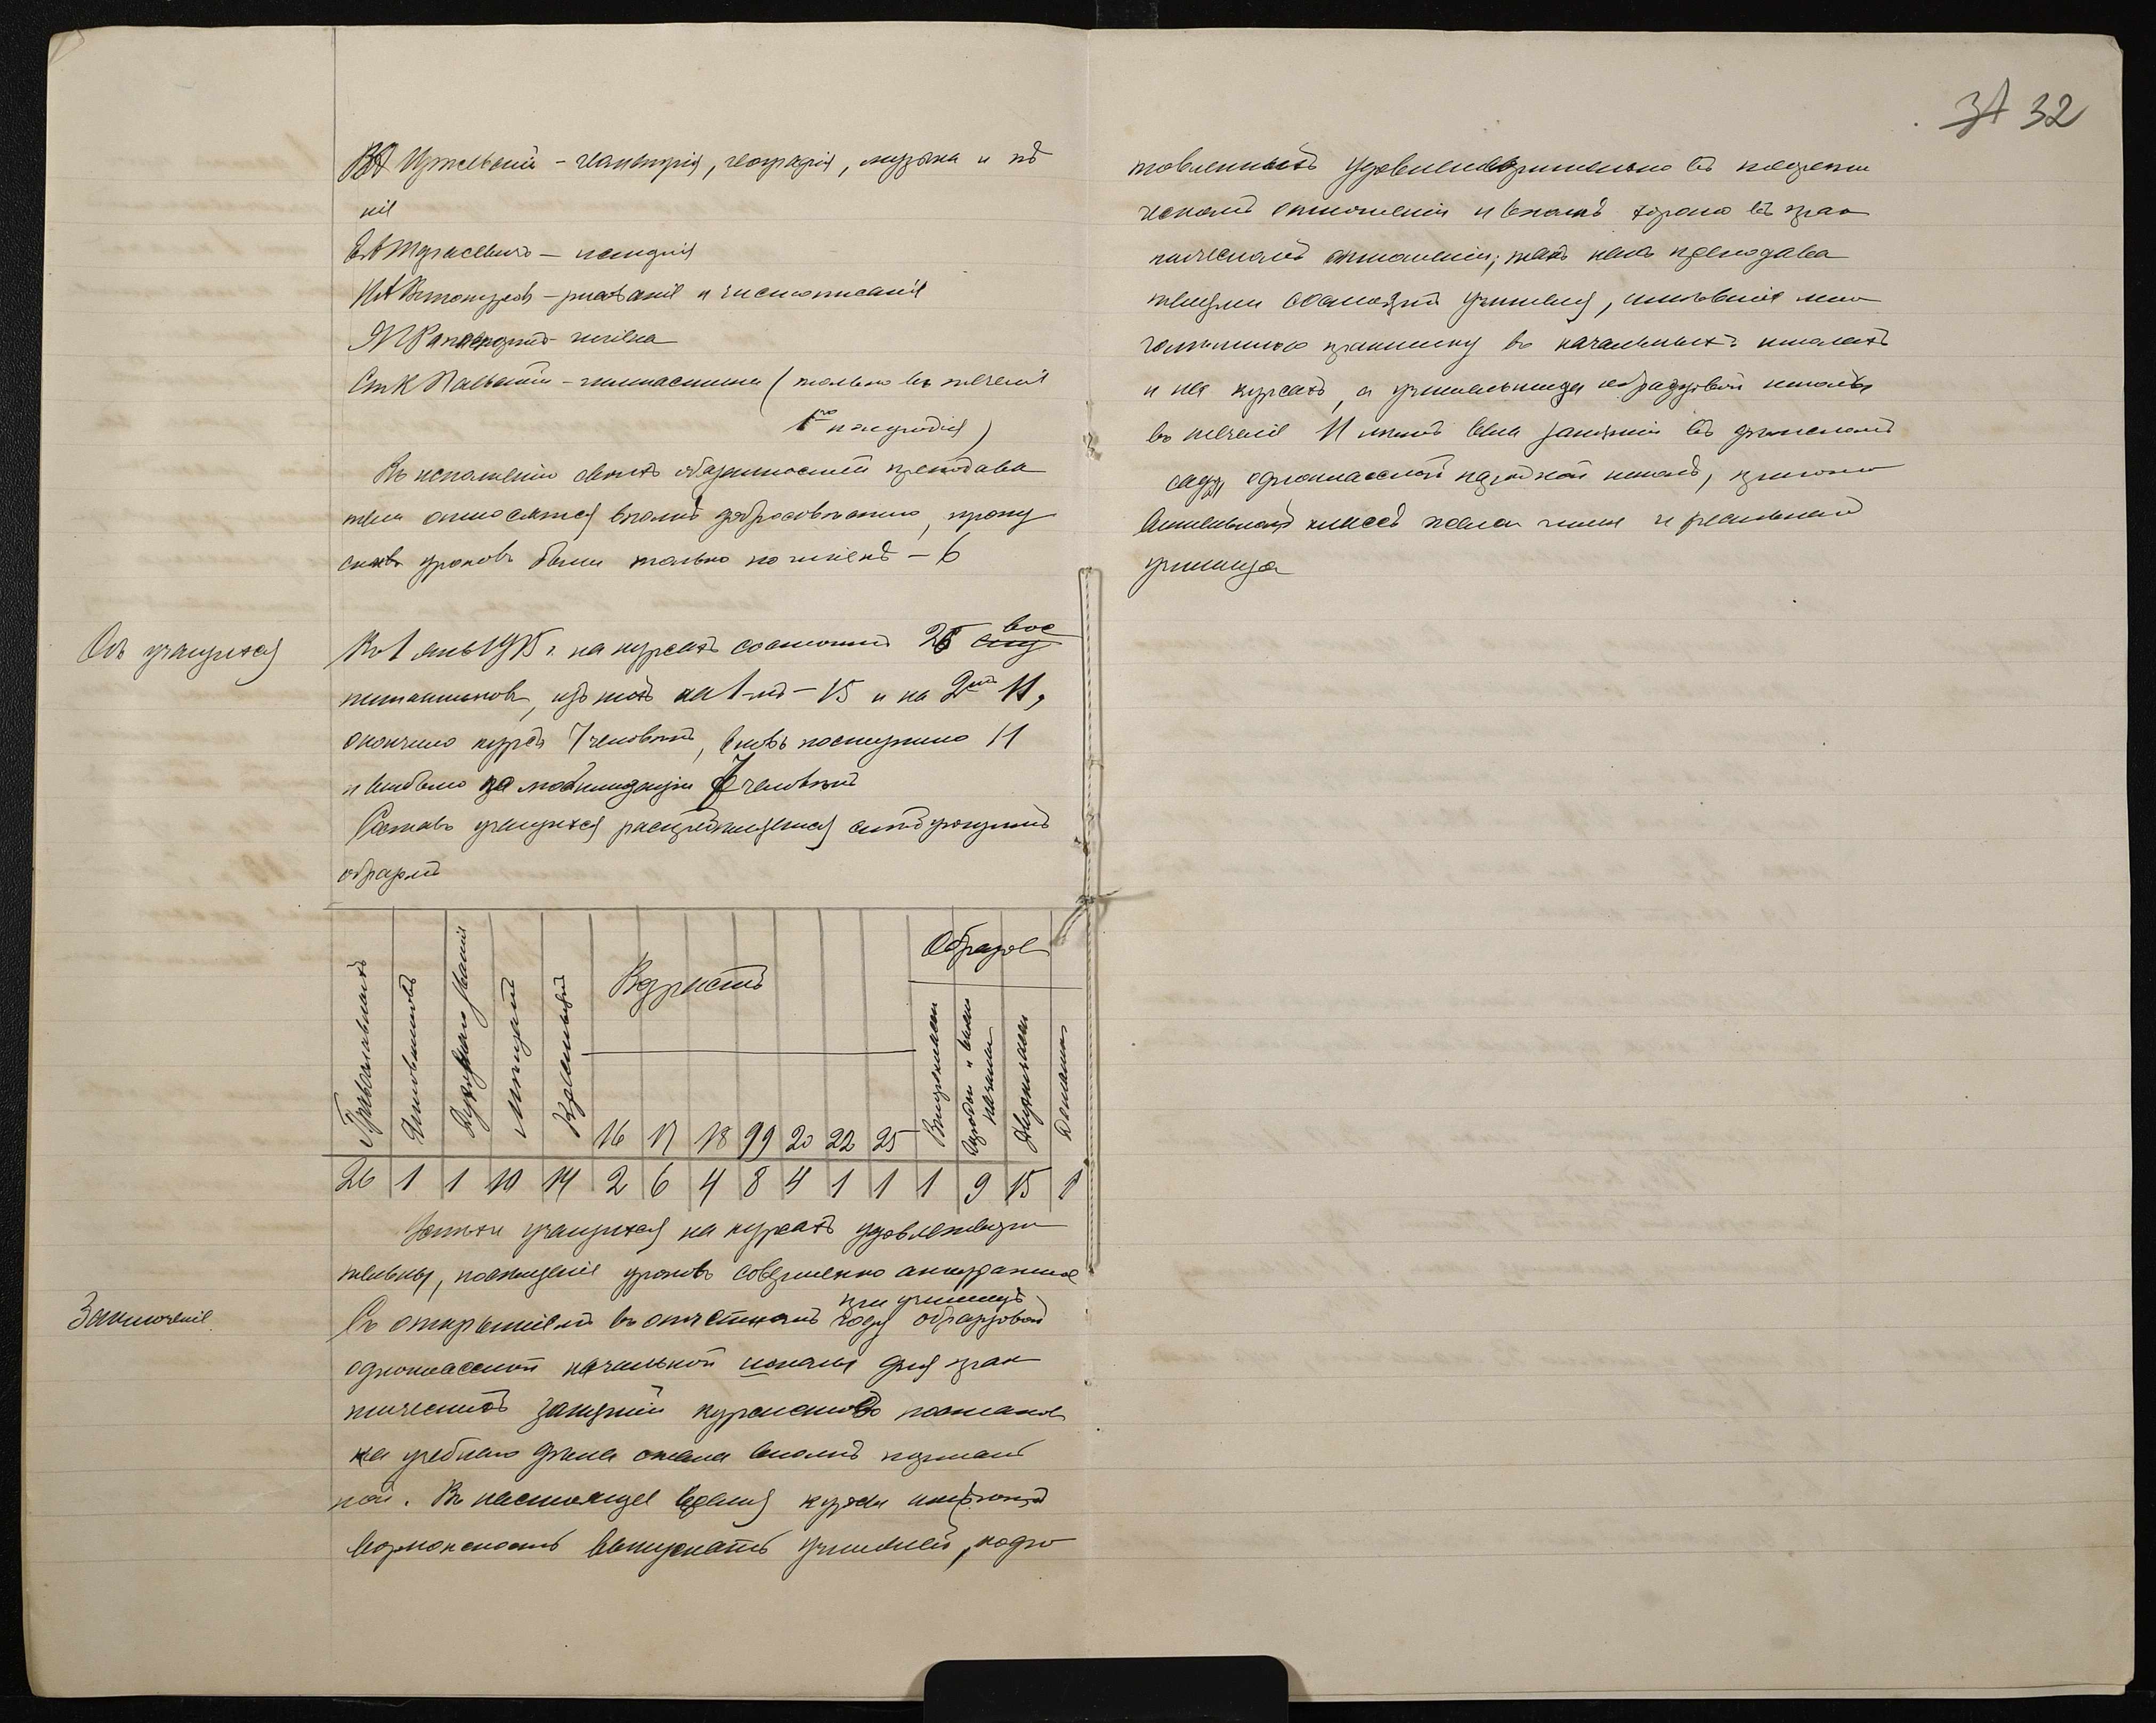 32
геометрія, географія, музыка и пѣ
ніе
гигіена
рисованіе и чистописаніе
гигіена
гимнастика (только въ теченіе
1го полугодія)
Къ исполненію своихъ обязанностей преподава
тели относятся вполнѣ добросовѣстно, пропу
сковъ уроковъ было только по гигіенѣ – 6
Объ учащихся
Къ 1 янв 1915 г. на курсахъ состояло 26 вос
питанниковъ, изъ нихъ на 1-мъ – 15 и на 2мъ 11,
окончило курсъ 7 человѣкъ, вновь поступило 11
и выбыло по мобилизаціи 7 человѣкъ
Составъ учащихся распредѣляется слѣдующимъ
образомъ
Православныхъ
Чиновниковъ
Духовнаго званія
Мѣщанъ
Крестьянъ
Возрастъ
Образов
Двухклассн
Домашн
16 17 18 19 20 22 25
26 1 1 10 14 2 6 4 8 4 1 1 1 9 15 1
Успѣхи учащихся на курсахъ удовлетвори
тельны, посѣщеніе уроковъ совершенно аккуратное
Заключеніе.
при училищѣ
Съ открытіемъ въ отчетномъ году образцовой
одноклассной начальной школы для прак
тическихъ занятій курсистовъ постанов
ка учебнаго дѣла стала вполнѣ нормаль
ной. Въ настоящее время курсы имѣютъ
возможность выпускать учителей, подго
товленныхъ удовлетворительно въ теорети
ческомъ отношеніи и вполнѣ хорошо въ прак
тическомъ отношеніи, такъ какъ преподава
телями состоятъ учителя, имѣвшіе мно
голѣтнюю практику въ начальныхъ школахъ
и на курсахъ, а учительница образцовой школы
въ теченіе 11 лѣтъ вела занятія въ дѣтскомъ
саду, одноклассной городской школѣ, пригото
вительномъ классѣ и реальнаго
училища